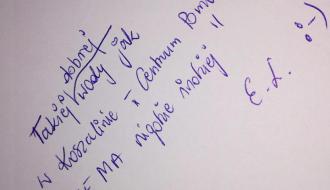 dobrej
Takiej wody jak
w Koszalinie „Centrum
MA nigdzie indziej"
E.L. :-)